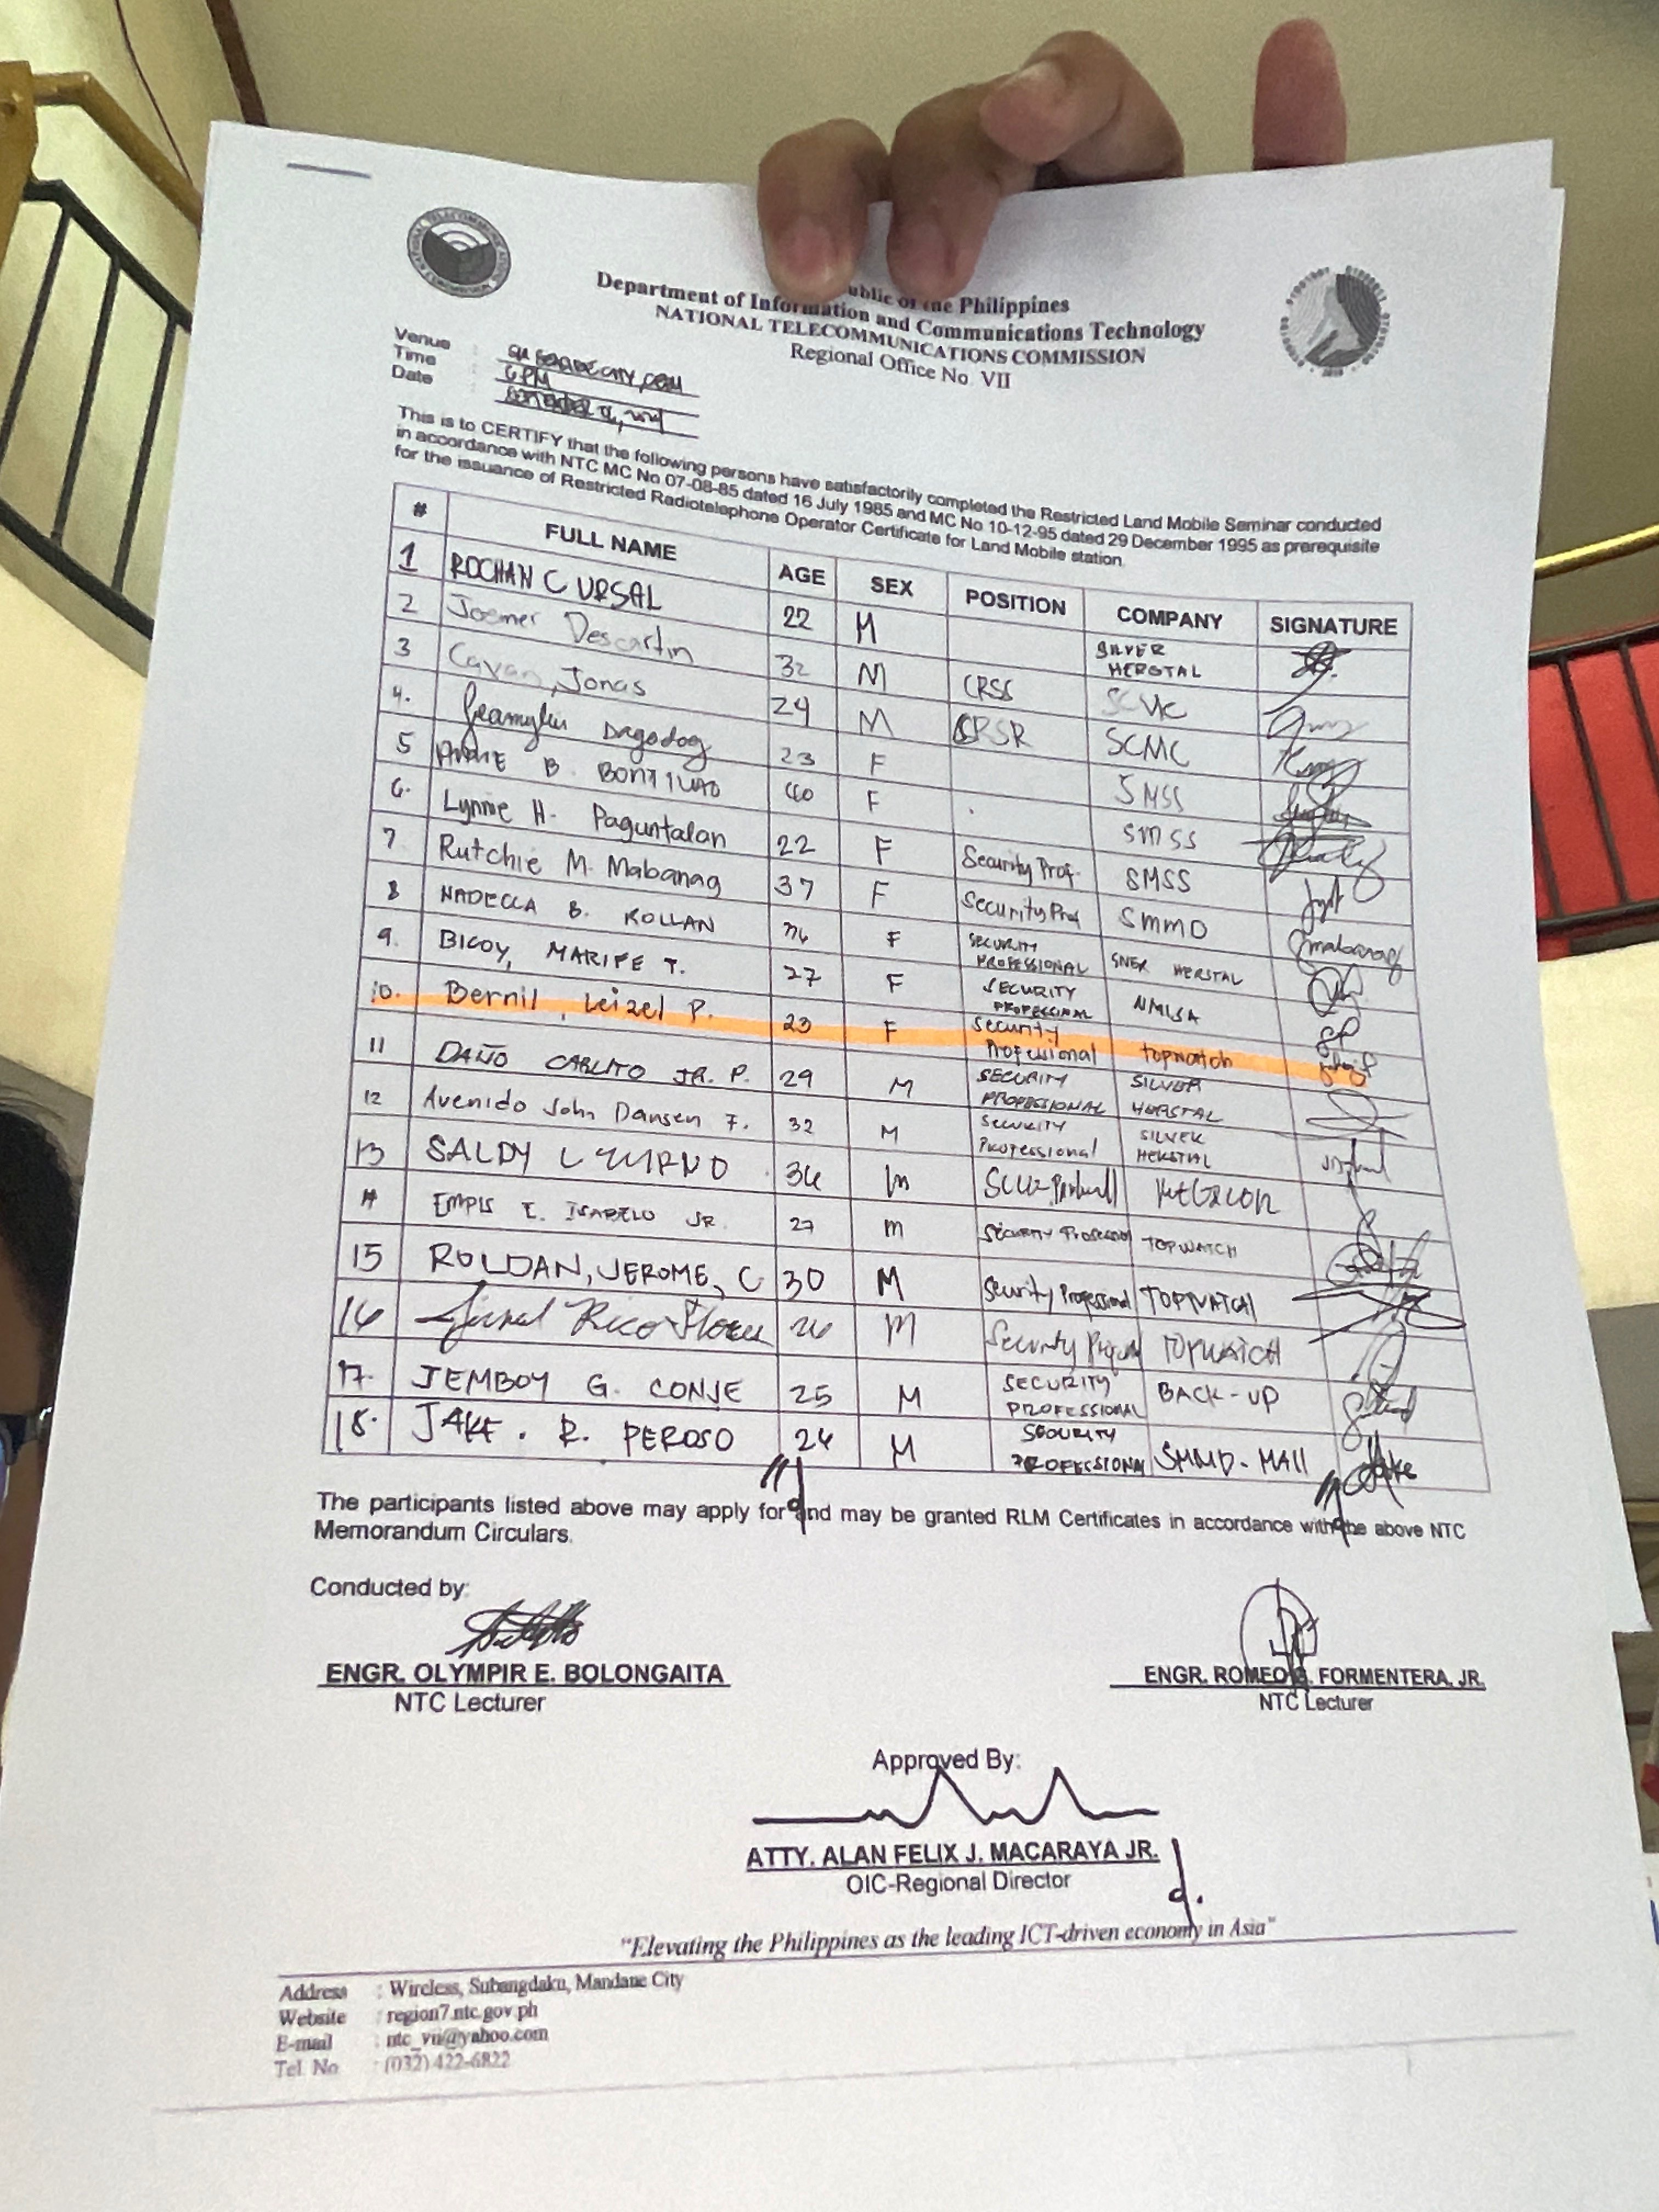 Republic of the Philippines
Department of Information and Communications Technology
NATIONAL TELECOMMUNICATIONS COMMISSION
Regional Office No. VII
Venue :
Time : 6 PM
Date :
This is to CERTIFY that the following persons have satisfactorily completed the Restricted Land Mobile Seminar conducted
in accordance with NTC MC No 07-08-85 dated 16 July 1985 and MC No 10-12-95 dated 29 December 1995 as prerequisite
for the issuance of Restricted Radiotelephone Operator Certificate for Land Mobile station
# FULL NAME AGE SEX POSITION COMPANY SIGNATURE
1 ROCHAN C URSAL 22 M SILVER HERSTAL
2 Joemer Descartin 32 M CRSS
3 Cavan, Jonas 24 M CRSR SCMC
4. Dagodog 23 F SMSS
5 B. BONTILAO 40 F SMSS
6. Lynnie H. Paguntalan 22 F Security Prof. SMSS
7 Rutchie M. Mabanag 37 F Security Prof SMMO
8 NADECCA B. KOLLAN F SECURITY PROFESSIONAL HERSTAL
9. BIGOY, MARIFE T. 27 F SECURITY PROFESSIONAL
10. Bernil, Leizel P. 23 F Security Professional topwatch
11 DAÑO CARLITO JR. P. 29 M SECURITY PROFESSIONAL SILVER HERSTAL
12 Avenido John Dansen F. 32 M Security Professional SILVER HERSTAL
13 SALDY 36 m
14 EMPIS E. ISABELO JR. 27 m Security Professional TOPWATCH
15 ROLDAN, JEROME, C 30 M Security Professional TOPWATCH
16 Rico 26 M Security TOPWATCH
17. JEMBOY G. CONJE 25 M SECURITY PROFESSIONAL BACK-UP
18. JAKE. R. PEROSO 24 M SECURITY PROFESSIONAL SMMD-MAll Jake
The participants listed above may apply for and may be granted RLM Certificates in accordance with the above NTC
Memorandum Circulars.
Conducted by:
ENGR. OLYMPIR E. BOLONGAITA ENGR. ROMEO G. FORMENTERA, JR.
NTC Lecturer NTC Lecturer
Approved By:
ATTY. ALAN FELIX J. MACARAYA JR.
OIC-Regional Director
"Elevating the Philippines as the leading ICT-driven economy in Asia"
Address : Wireless, Subangdaku, Mandaue City
Website : region7.ntc.gov.ph
E-mail : ntc_vii@yahoo.com
Tel. No : (032) 422-6822